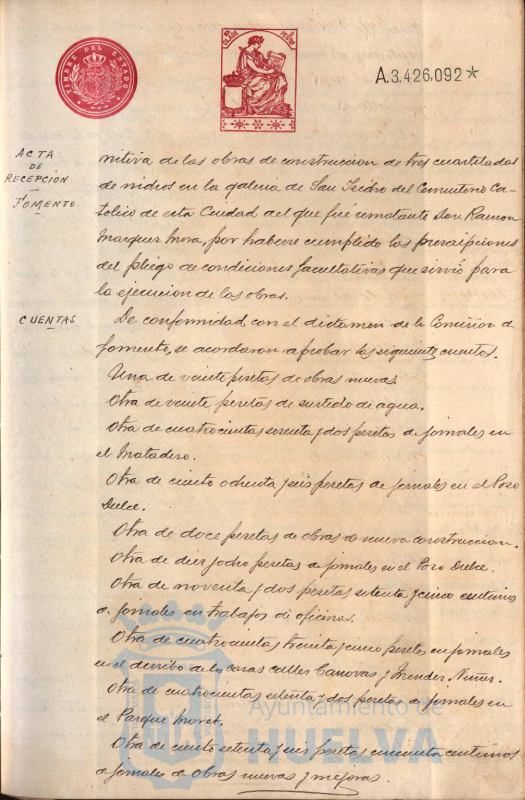 TIMBRE DEL ESTADO
A.3.426,092*
ACTA
DE
RECEPCION
-
FOMENTO
nitiva de las obras de construccion de tres cuarteladas
de nichos en la galeria de San Isidro del Cementerio Ca-
tolico de esta Ciudad del que fué rematante Don Ramon
Marquez Mora, por haberse cumplido las prescripciones
del pliego de condiciones facultativas que sirvió para
la ejecucion de las obras.
CUENTAS
De conformidad con el dictamen de la Comision de
fomento, se acordaron aprobar las siguientes cuentas.
Una de veinte pesetas de obras nuevas.
Otra de veinte pesetas de surtido de agua.
Otra de cuatrocientas sesenta y dos pesetas de jornales en
el Matadero.
Otra de ciento ochenta y seis pesetas de jornales en el Pozo
Dulce.
Otra de doce pesetas de obras de nueva construccion.
Otra de diez y ocho pesetas de jornales en el Pozo Dulce.
Otra de noventa y dos pesetas setenta y cinco centimos
de jornales en trabajos de oficinas.
Otra de cuatrocientas treinta y cinco pesetas en jornales
en el derribo de las casas calles Canovas y Mendez Nuñez.
Otra de cuatrocientas setenta y dos pesetas de jornales en
el Parque Moret.
Otra de ciento setenta y seis pesetas cincuenta centimos
de jornales de obras nuevas y mejoras.
Ayuntamiento de
HUELVA